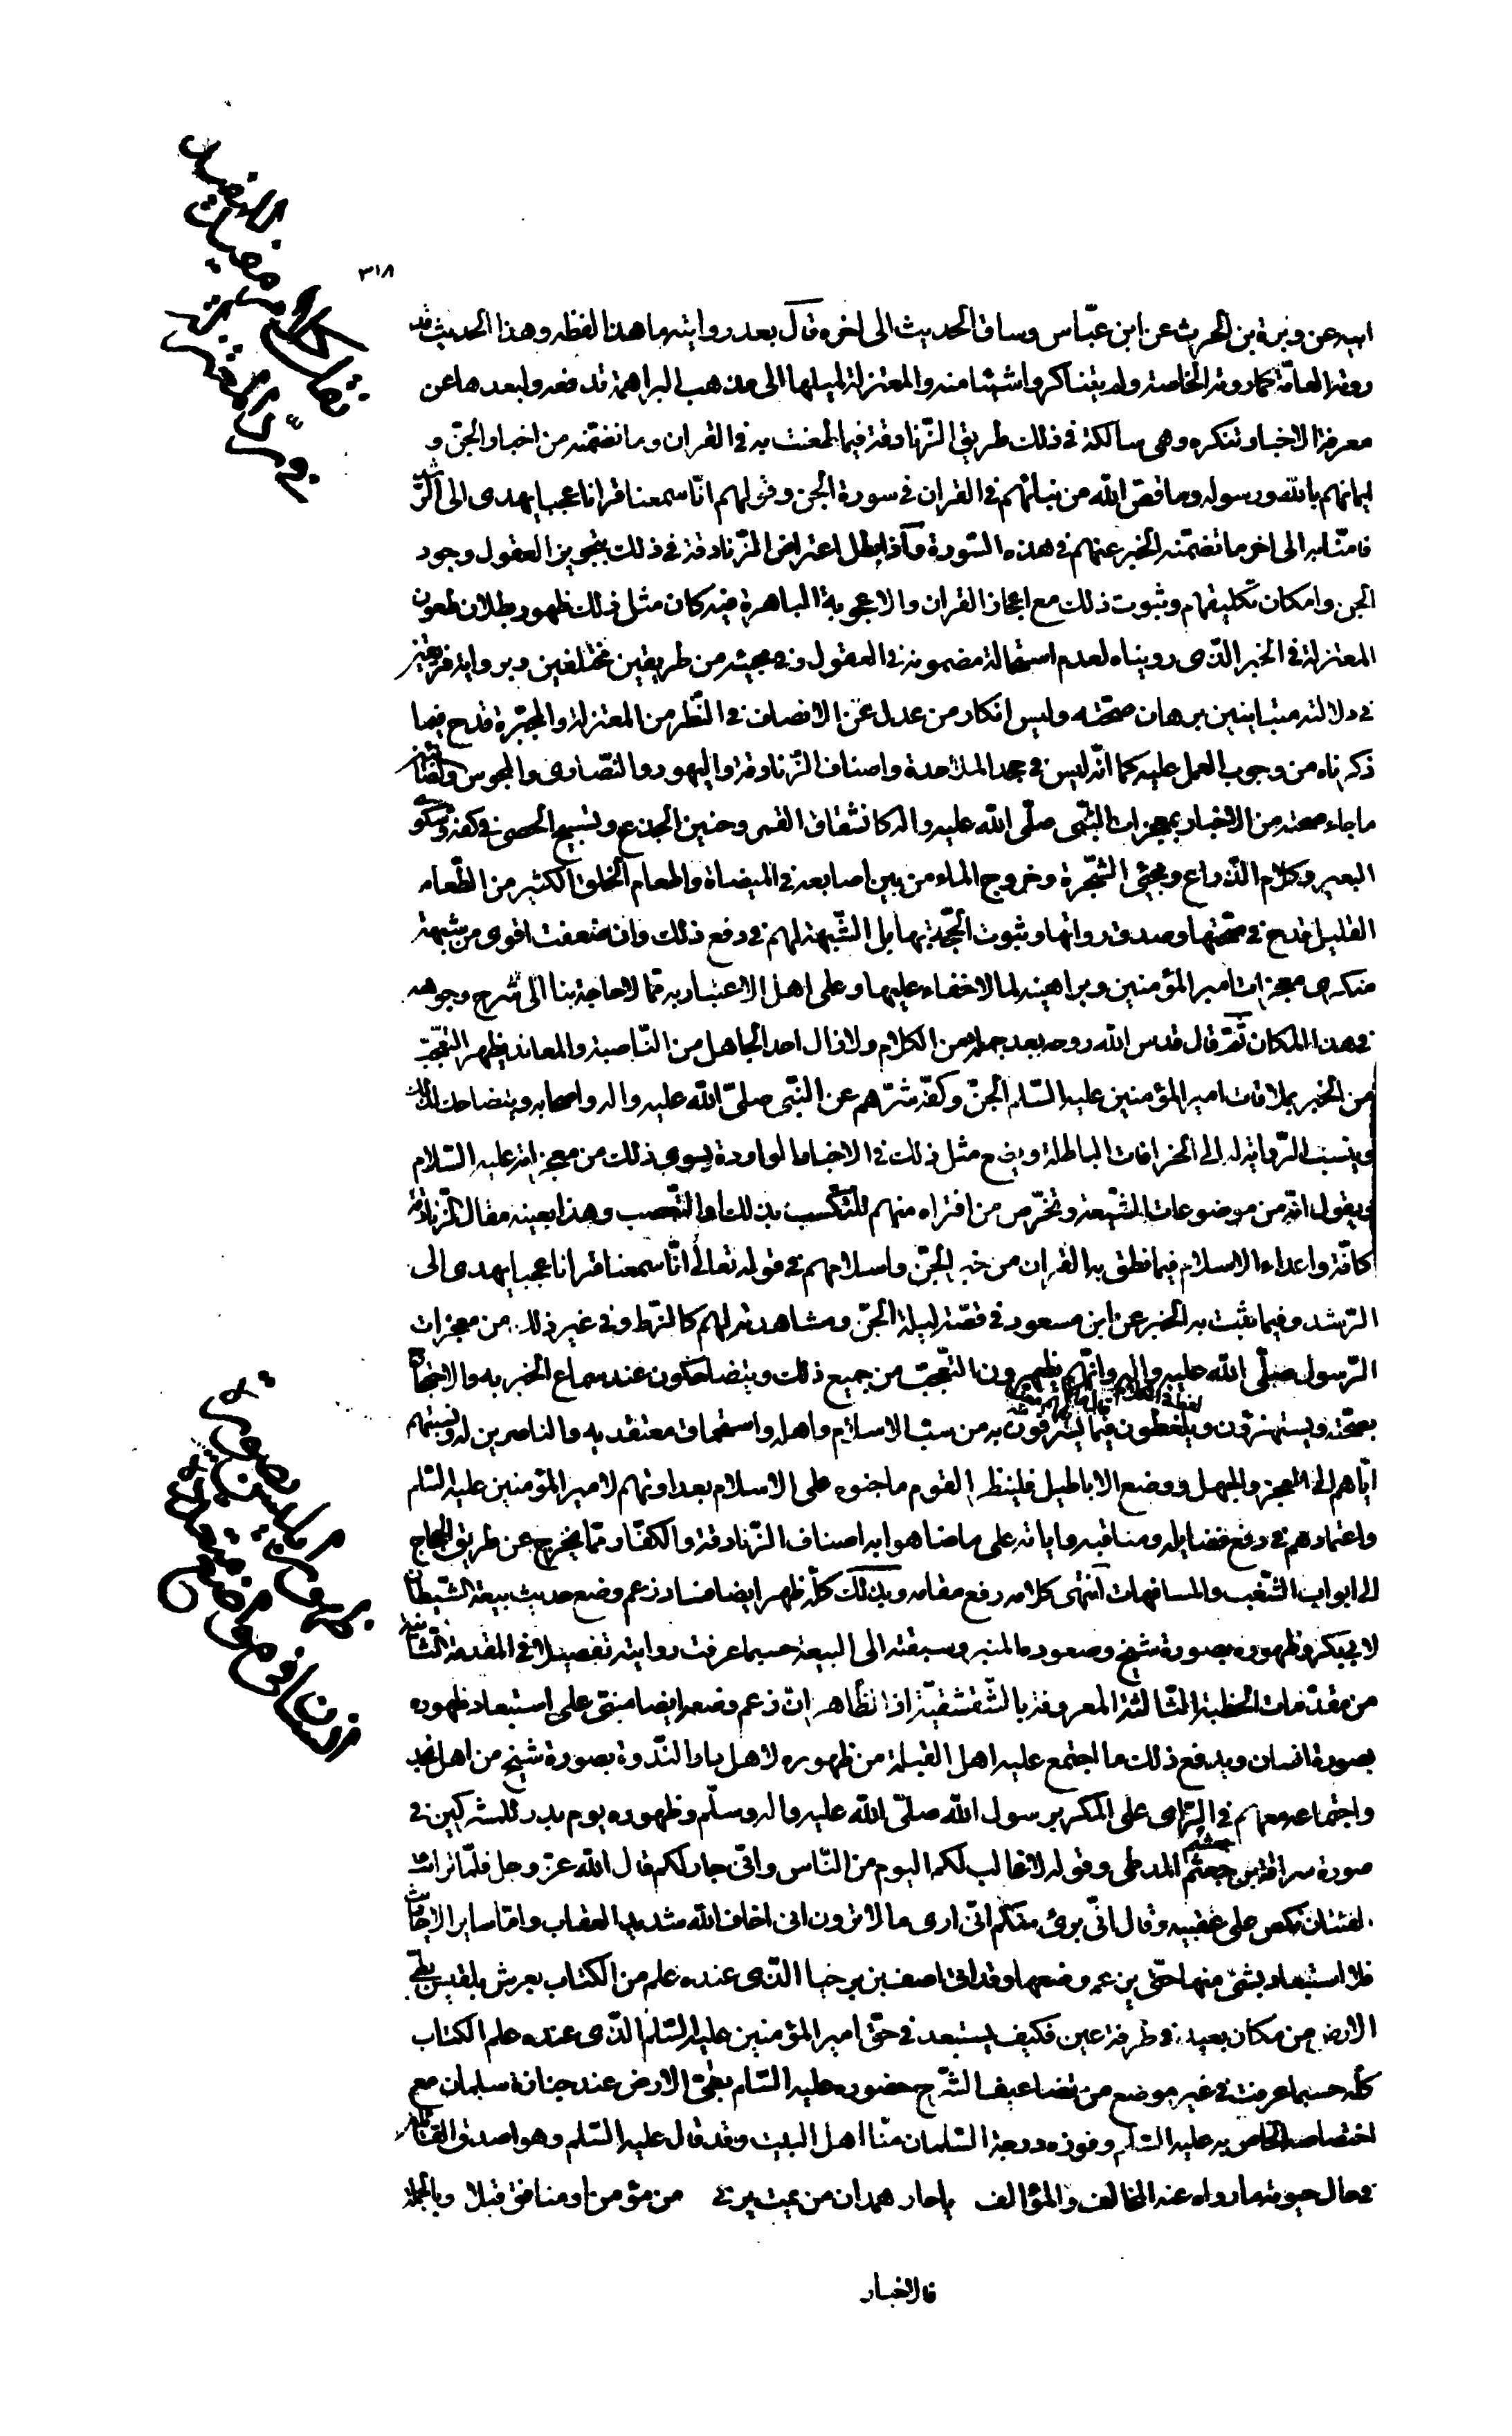 ٣١٨
ابيه عن وبرة بن الحرث عن ابن عبّاس وساق الحديث الى اخره قال بعد روايته ما هذا لفظه وهذا الحديث قد
روته العامّة كما روته الخاصة ولم يتناكروا شيئا منه والمعتزلة لميلها الى مذهب البراهمة تدفعه ولبعدها عن
معرفة الاخبار تنكره وهى سالكة فى ذلك طريق الزّنادقة فيما طعنت به فى القران وما تضمّنه من اخبار الجنّ و
ايمانهم بالله ورسوله وما قصّ الله من نبائهم فى القران فى سورة الجن وقولهم انّا سمعنا قرانا عجبا يهدى الى الرّشد
فامنّا به الى اخر ما تضمّنه الخبر عنهم فى هذه السّورة واذا بطل اعتراض الزّنادقة فى ذلك بتجويز العقول وجود
الجن وامكان تكليفهم وثبوت ذلك مع اعجاز القران والاعجوبة الباهرة فيه كان مثل ذلك ظهور بطلان طعون
المعتزلة فى الخبر الذّى رويناه لعدم استحالة مضمونه فى العقول وفى مجيئه من طريقين مختلفين وبرواية فريقين
فى دلالته متباينين برهان صحّته وليس انكار من عدل عن الانصاف فى النّظر من المعتزلة والمجبّرة قدح فيما
ذكرناه من وجوب العمل عليه كما انّه ليس فى جحد الملاحدة واصناف الزّنادقة واليهود والنّصارى والمجوس والصّابئين
ما جاء صحته من الاخبار بمعجزات النّبى صلّى الله عليه واله كانشقاق القمر وحنين الجذع وتسبيح الحصى فى كفه وشكوى
البعير وكلام الذّراع ومجئ الشّجرة وخروج الماء من بين اصابعه فى الميضاة واطعام الخلق الكثير من الطّعام
القليل قدح فى صحّتها وصدق رواتها وثبوت الحجّة بها بل الشّبهة لهم فى دفع ذلك وان ضعفت اقوى من شبهة
منكرى معجزات امير المؤمنين وبراهينه لما لا خفاء عليها وعلى اهل الاعتبار به ممّا لا حاجة بنا الى شرح وجوهه
فى هذا المكان ثمّ قال قدس الله روحه بعد جملة من الكلام ولا ازال اجد الجاهل من النّاصبة والمعاند يظهر التعجّب
من الخبر بملاقات امير المؤمنين عليه السّلام الجنّ وكفّه شرّهم عن النّبى صلىّ الله عليه واله واصحابه ويتضاحك لذلك
وينسب الرّواية له الى الخرافات الباطلة ويضع مثل ذلك فى الاخبار الواردة بسوى ذلك من معجزاته عليه السّلام
ويقول انّه من موضوعات الشّيعة وتخرّص من افتراه منهم للتكسب بذلك او التّعصب وهذا بعينه مقال الزّنادقة
كافّة واعداء الاسلام فيما نطق به القران من خبر الجنّ واسلامهم فى قوله تعالى انّا سمعنا قرانا عجبا يهدى الى
الرّشد وفيما ثبت به الخبر عن ابن مسعود فى قصّة ليلة الجنّ ومشاهدته لهم كالزّط وفى غير ذلك من معجزات
الرّسول صلّى الله عليه واله وانّهم يظهرون التّعجّب من جميع ذلك ويتضاحكون عند سماع الخبر به والاحتجاج
بصحّته ويستهزؤن ويلغطون فيما يسرفون به من سبّ الاسلام واهله واستحماق معتقديه والناصرين له ونسبتهم
ايّاهم الى العجز والجهل ووضع الاباطيل فلينظر القوم ما جنوه على الاسلام بعداوتهم لامير المؤمنين عليه السّلم
واعتمادهم فى دفع فضايله ومناقبه واياته على ما ضاهوا به اصناف الزّنادقة والكفّار ممّا يخرج عن طريق الحجاج
الى ابواب الشّغب والمسافهات انتهى كلامه رفع مقامه وبذلك كلّه ظهر ايضا فساد زعم وضع حديث بيعة الشّيطان
لابى بكر وظهوره بصورة شيخ وصعوده المنبر وسبقته الى البيعة حسبما عرفت روايته تفصيلا فى المقدمة الثّانية
من مقدّمات الخطبة الثّالثة المعروفة بالشّقشقيّة اذ الظّاهر انّ زعم وضعه ايضا مبنىّ على استبعاد ظهوره
بصورة انسان ويدفع ذلك ما اجتمع عليه اهل القبلة من ظهوره لاهل دار النّدوة بصورة شيخ من اهل نجد
واجتماعه معهم فى الرّاى على المكر برسول الله صلىّ الله عليه واله وسلّم وظهوره يوم بدر للمشركين فى
صورة سراقة بن جعثم المدلجى وقوله لا غالب لكم اليوم من النّاس وانّى جار لكم قال الله عزّ وجل فلمّا تراءت
الفئتان نكص على عقبيه وقال انّى برئ منكم انّى ارى ما لا ترون انى اخاف الله شديد العقاب وامّا ساير الاحاديث
فلا استبعاد بشئ منها حتّى يزعم وضعها وقد اتى اصف بن برخيا الذّى عنده علم من الكتاب بعرش بلقيس بطىّ
الارض من مكان بعيد فى طرفة عين فكيف يستبعد فى حقّ امير المؤمنين عليه السّلم الذّى عنده علم الكتاب
كلّه حسبما عرفت فى غير موضع من تضاعيف الشّرح حضوره عليه السّلم بطىّ الارض عند جنازة سلمان مع
اختصاصه الخاص به عليه السّلم وفوزه درجة السّلمان منّا اهل البيت وقد قال عليه السّلم وهو اصدق القائلين
فى حال حيوته ما رواه عنه المخالف والمؤالف يا حار همدان من يمت يرنى من مؤمن او منافق قبلا وبالجملة
فالاخبار